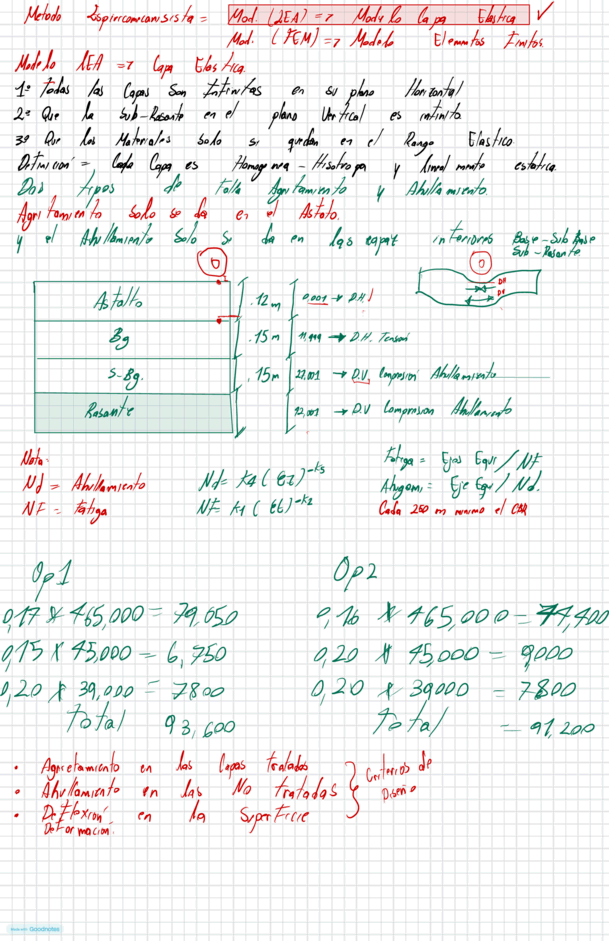 Metodo Espiricomecanisista = Mod. (LEA) => Modulo Capa Elastica ✓
Mod. (FEM) => Modelo Elementos Finitos.
Modelo LEA => Capa Elastica.
1º Todas las Capas Son Infinitas en su plano Horizontal
2º Que la Sub-Rasante en el plano Vertical es infinito.
3º Que los Materiales solo si quedan en el Rango Elastico
Definición = Cada Capa es Homogenea - Hisotropa y lineal mente estatica.
Dos tipos de falla Agritamiento y Ahullamiento.
Agritamiento solo se da en el Asfalto.
y el Ahullamiento Solo Se da en las capas inferiores Base - Sub Base
Sub - Rasante
Asfalto .12m 0,001 → D.H.
D.H
D.V
Bg .15m 11,999 → D.H. Tension
S-Bg. .15m 27,001 → D.V. Compresion Ahullamiento
Rasante 42,001 → D.V Compresion Ahullamiento
Nota:
Nd = Ahullamiento
NF = Fatiga
Nd = K4 (EZ)^-K5
NF = K1 (Et)^-K2
Fatiga = Ejes Equi / NF
Eje Equi / Nd.
Cada 250 m minimo el CBR
Op1
0,17 * 465,000 = 79,050
0,15 * 45,000 = 6,750
0,20 * 39,000 = 7800
Total 93,600
Op2
0,16 * 465,000 = 74,400
0,20 * 45,000 = 9,000
0,20 * 39000 = 7800
Total = 91,200
• Agrietamiento en las Capas tratadas
• Ahullamiento en las No tratadas
• Deflexión en la Superficie
Deformación.
Criterios de
Diseño
Made with Goodnotes